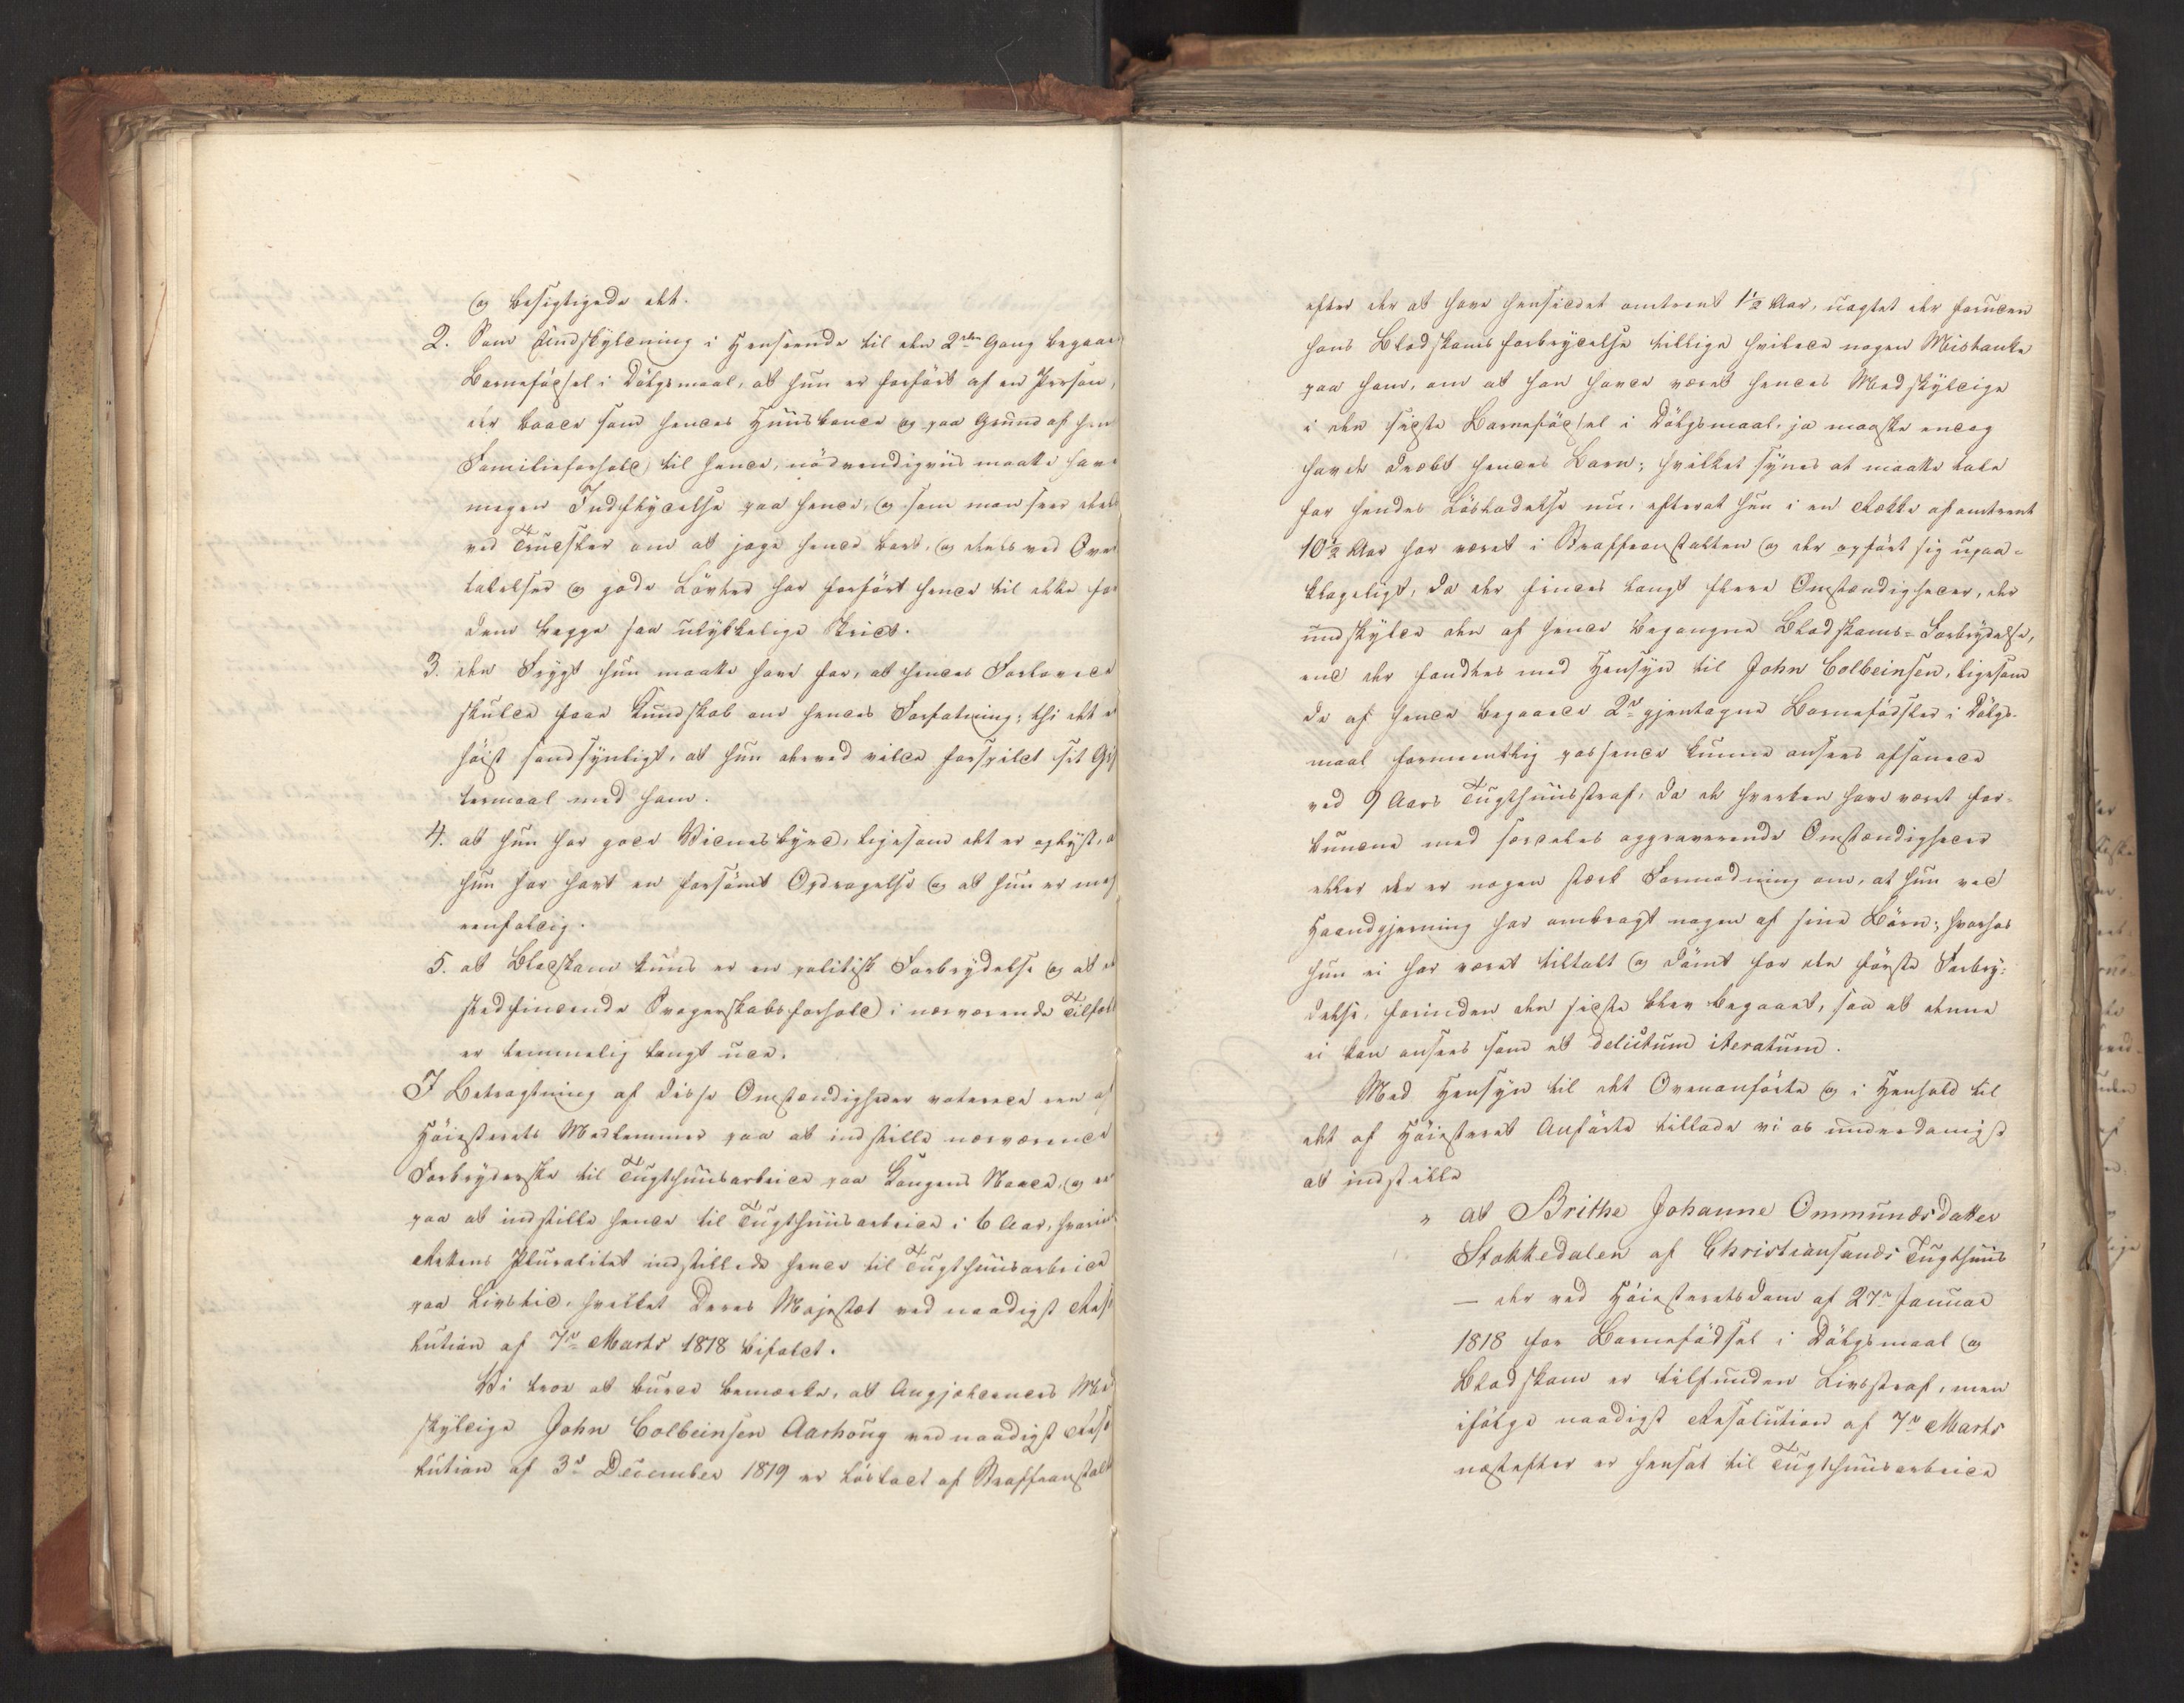 og besigtigede det.
2. Som Undskyldning i Henseende til den 2den Gang begaaed
Barnefødsel i Dølgsmaal, at hun er forført af en Person,
der baade som hendes Huusbonde og paa Grund af hen
Familieforhold til hende, nødvendigviis maatte have
megen Indflydelse paa hende, og som man seer deels
ved Trudsler om at jage hende bort, og deels ved Over
talelser og gode Løvter har forført hende til dette for
dem begge saa ulykkelige Skridt.
3. den Frygt hun maatte have for, at hendes Forlovede
skulde faae Kundskab om hendes Forfatning; thi det er
høist sandsynligt, at hun derved vilde forspildt sit Gif
termaal med ham.
4. at hun har gode Vidnesbyrd, ligesom det er oplyst, a
hun har havt en forsømt Opdragelse og at hun er meg
eenfoldig.
5. at Blodskam kuns er en politisk Forbrydelse og at d
stedfindende Svogerskabsforhold i nærværende Tilfæl
er temmelig langt ude.
I Betragtning af disse Omstændigheder voterede een af
Høiesterets Medlemmer paa at indstille nærværende
Forbryderske til Tugthuusarbeide paa Kongens Naade, og en
paa at indstille hende til Tugthuusarbeide i 6 Aar, hvorimod
Rettens Pluralitet indstillede hende til Tugthuusarbeide
paa Livstid, hvilket Deres Majestæt ved naadigst Reso
lution af 7de Marts 1818 bifaldt.
Vi troe at burde bemærke, at Angjældendes Med
skyldige John Colbeinsen Aarhoug ved naadigst Reso
lution af 3de December 1819 er løsladt af Straffeanstalt
efter der at have hensiddet omtrent 1½ Aar, uagtet der foruden
hans Blodskams forbrydelse tillige hvilede nogen Mistanke
paa ham, om at han havde været hendes Medskyldige
i den sidste Barnefødsel i Dølgsmaal, ja maaskee endog
havde dræbt hendes Barn; hvilket synes at maatte tale
for hendes Løsladelse nu, efterat hun i en Række af omtrent
10½ Aar har været i Straffeanstalten og der opført sig upaa-
klageligt, da der findes langt flere Omstændigheder, der
undskylde den af hende begangne Blodskams-Forbrydelse,
end der fandtes med Hensyn til John Colbeinsen, ligesom
de af hende begaaede 2de gjentagne Barnefødsler i Dølgs-
maal formeentlig passende kunne ansees afsonede
ved 9 Aars Tugthuusstraf, da de hverken have været for-
bundne med særdeles aggraverende Omstændigheder
eller der er nogen stærk Formodning om, at hun ved
Haandgjerning har ombragt nogen af sine Børn; hvorhos
hun ei har været tiltalt og dømt for den første Forbry-
delse, forinden den sidste blev begaaet, saa at denne
ei kan ansees som et delictum iteratum.
Med Hensyn til det Ovenanførte og i Henhold til
det af Høiesteret Anførte tillade vi os underdanigst
at indstille
" at Brithe Johanne Ommundsdatter
Stokkedalen af Christiansands Tugthuus
— der ved Høiesteretsdom af 27de Januar
1818 for Barnefødsel i Dølgsmaal og
Blodskam er tilfunden Livsstraf, men
ifølge naadigst Resolution af 7de Marts
næstefter er hensat til Tugthuusarbeide